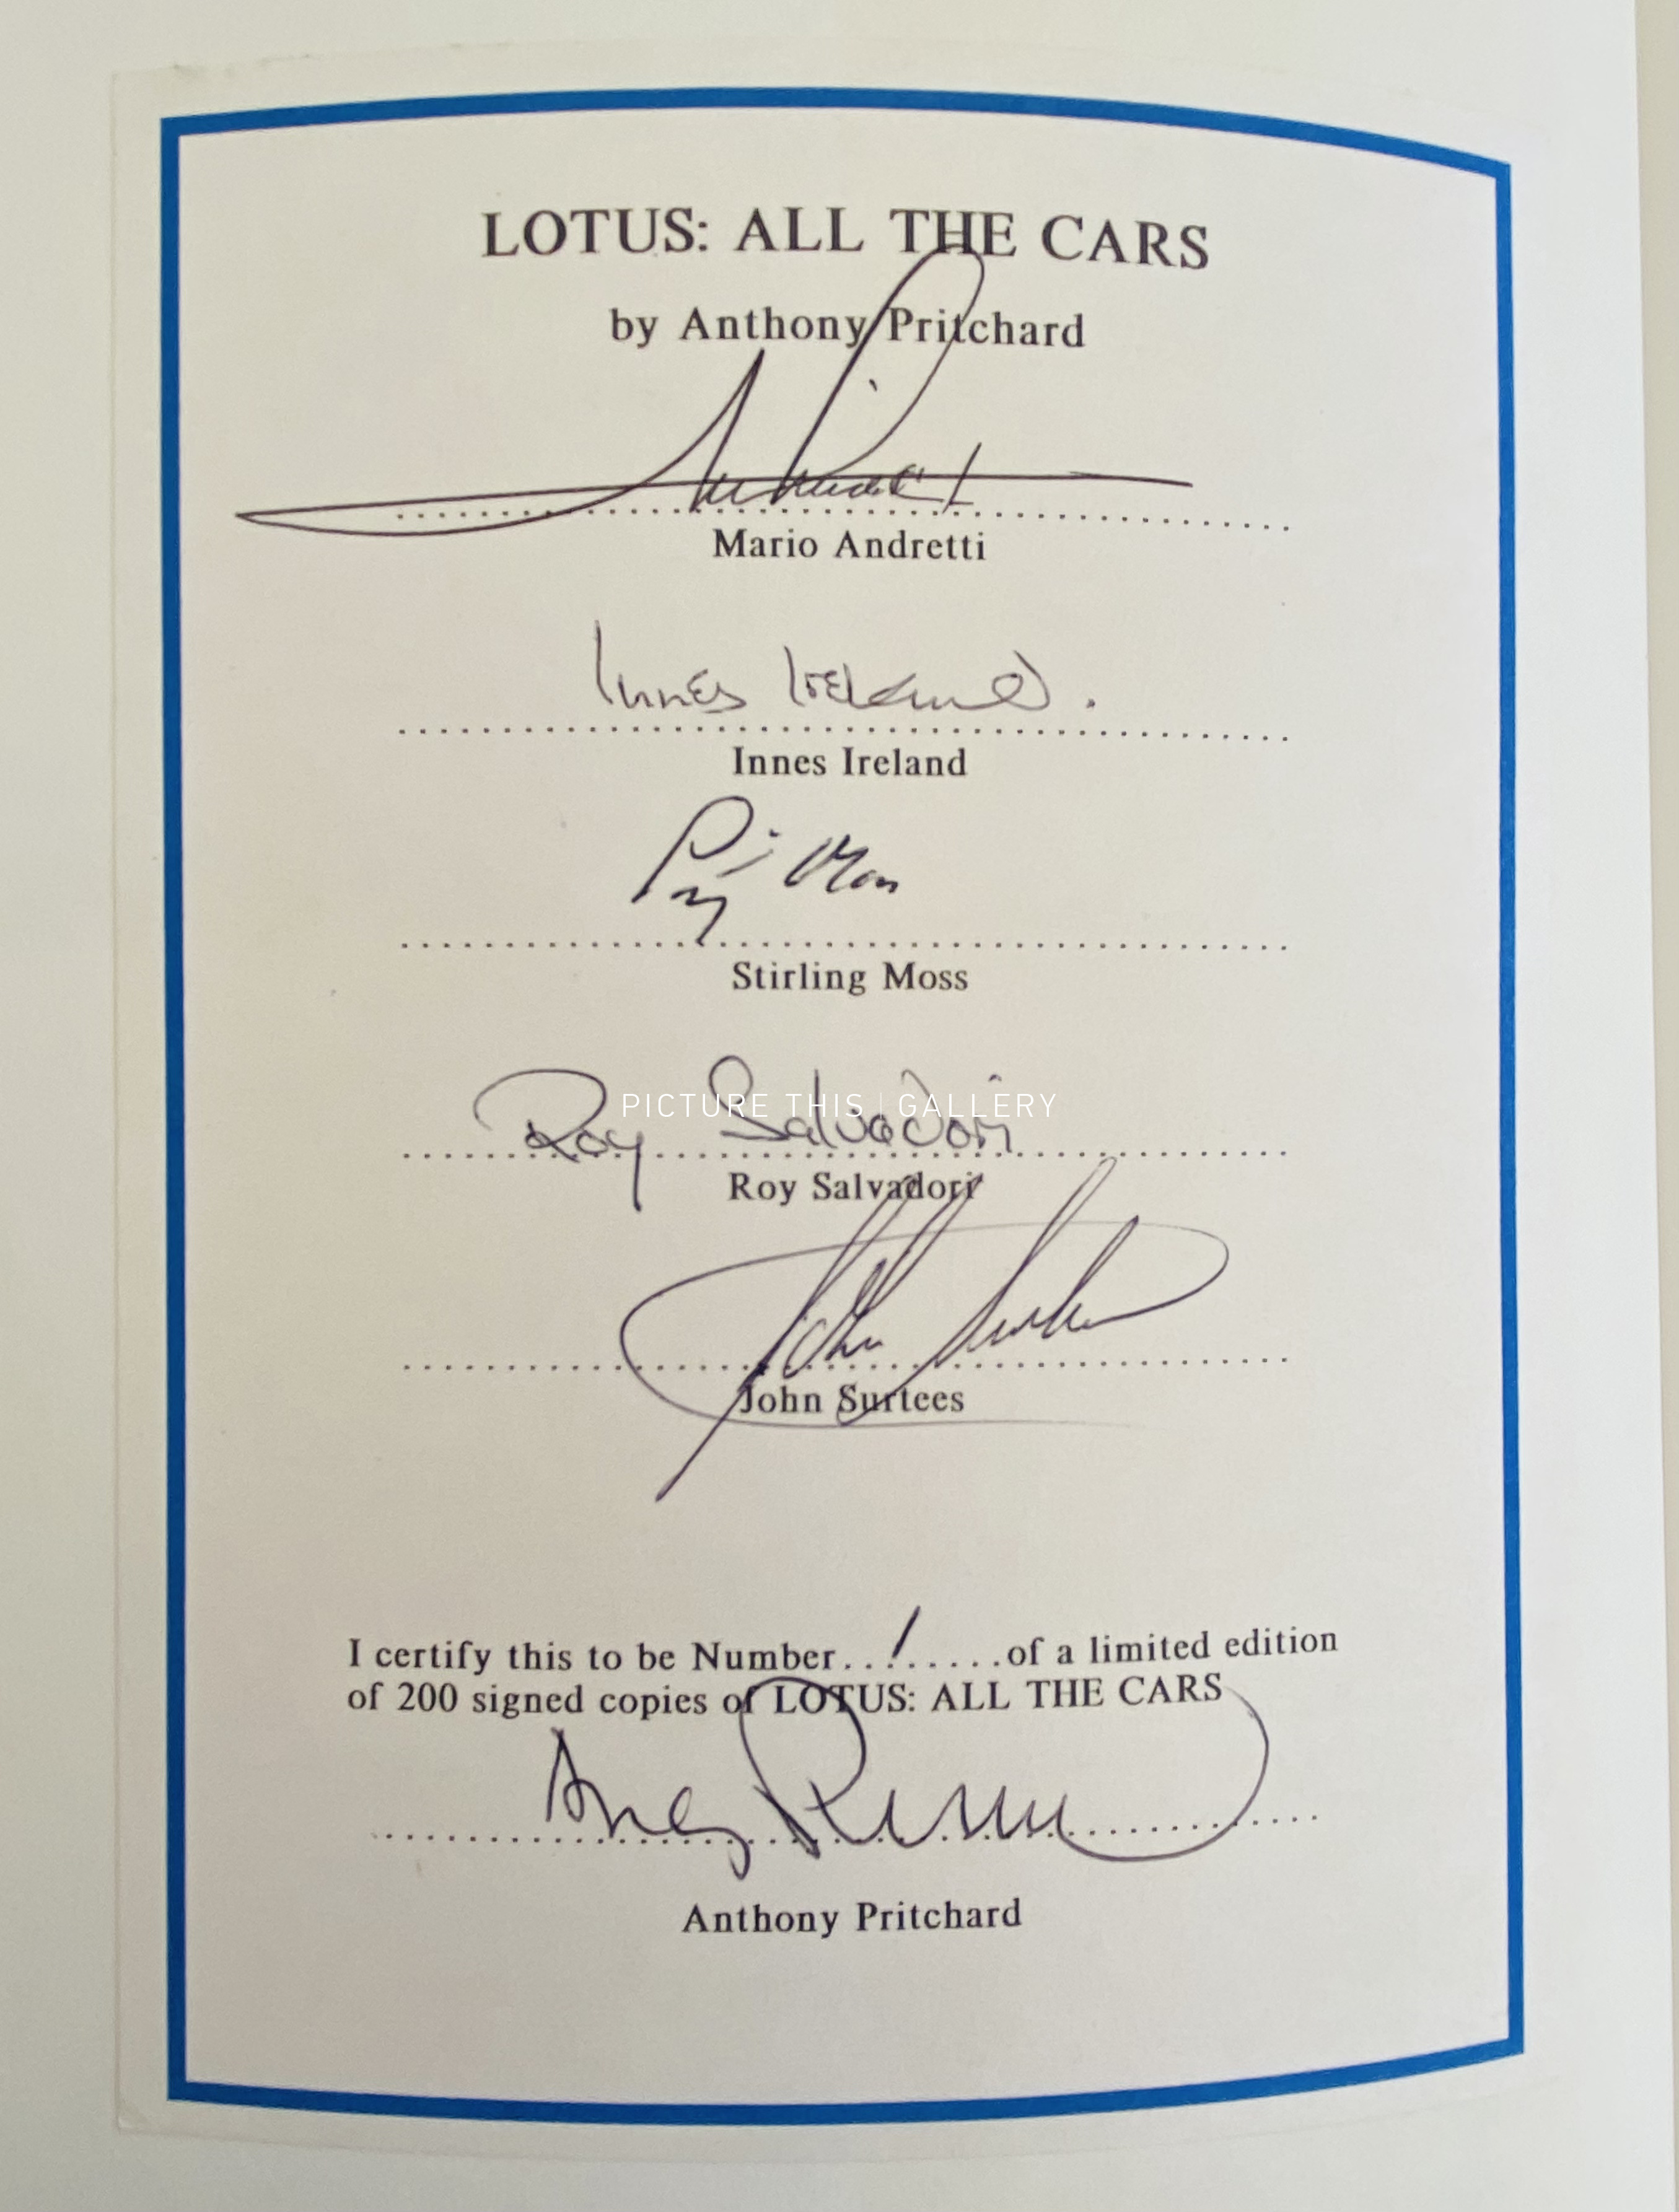 LOTUS: ALL THE CARS
by Anthony Pritchard
Mario Andretti
Innes Ireland.
Innes Ireland
Stirling Moss
Roy Salvadori
PICTURE THIS | GALLERY
Roy Salvadori
John Surtees
John Surtees
I certify this to be Number...1......of a limited edition
of 200 signed copies of LOTUS: ALL THE CARS
Anthony Pritchard